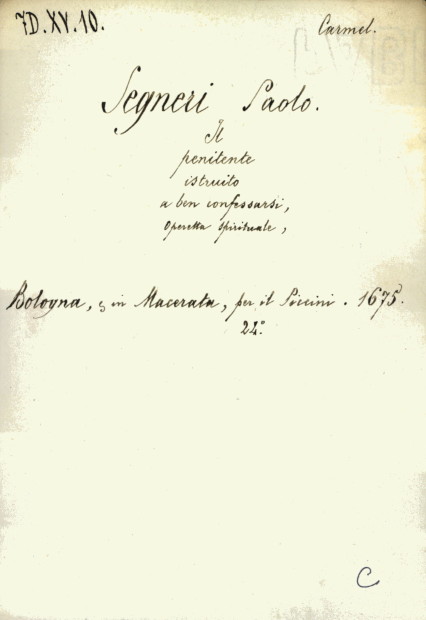 7D.XV.10.
Carmel.
Segneri Paolo.
Il
penitente
istruito
a ben confessarsi,
Operetta spirituale,
Bologna, & in Macerata, per il Piccini. 1675.
24.°
C